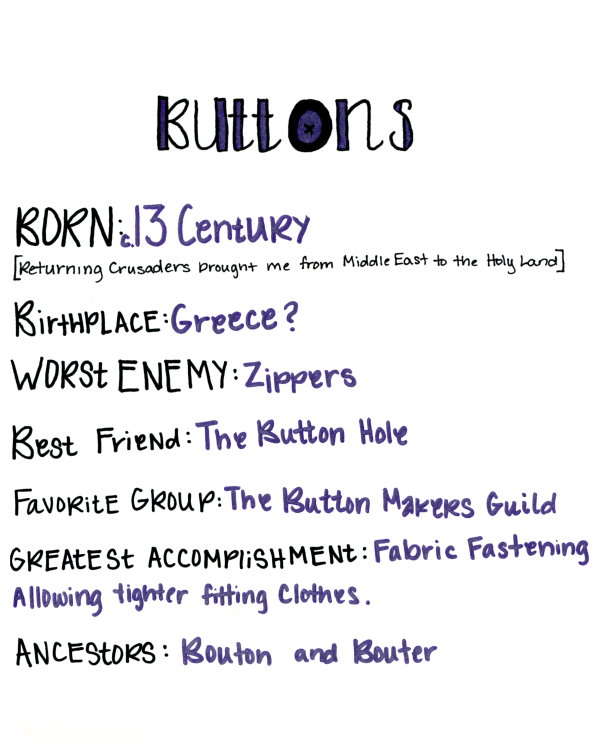 Buttons
BORN: c.13 Century
[Returning Crusaders brought me from Middle East to the Holy Land]
BirtHPLACE: Greece?
WORSt ENEMY: Zippers
Best Friend: The Button Hole
FavoRitE GROUP: The Button Makers Guild
GREAtESt ACCOMPliSHMENt: Fabric Fastening
Allowing tighter fitting Clothes.
ANCEStORS: Bouton and Bouter